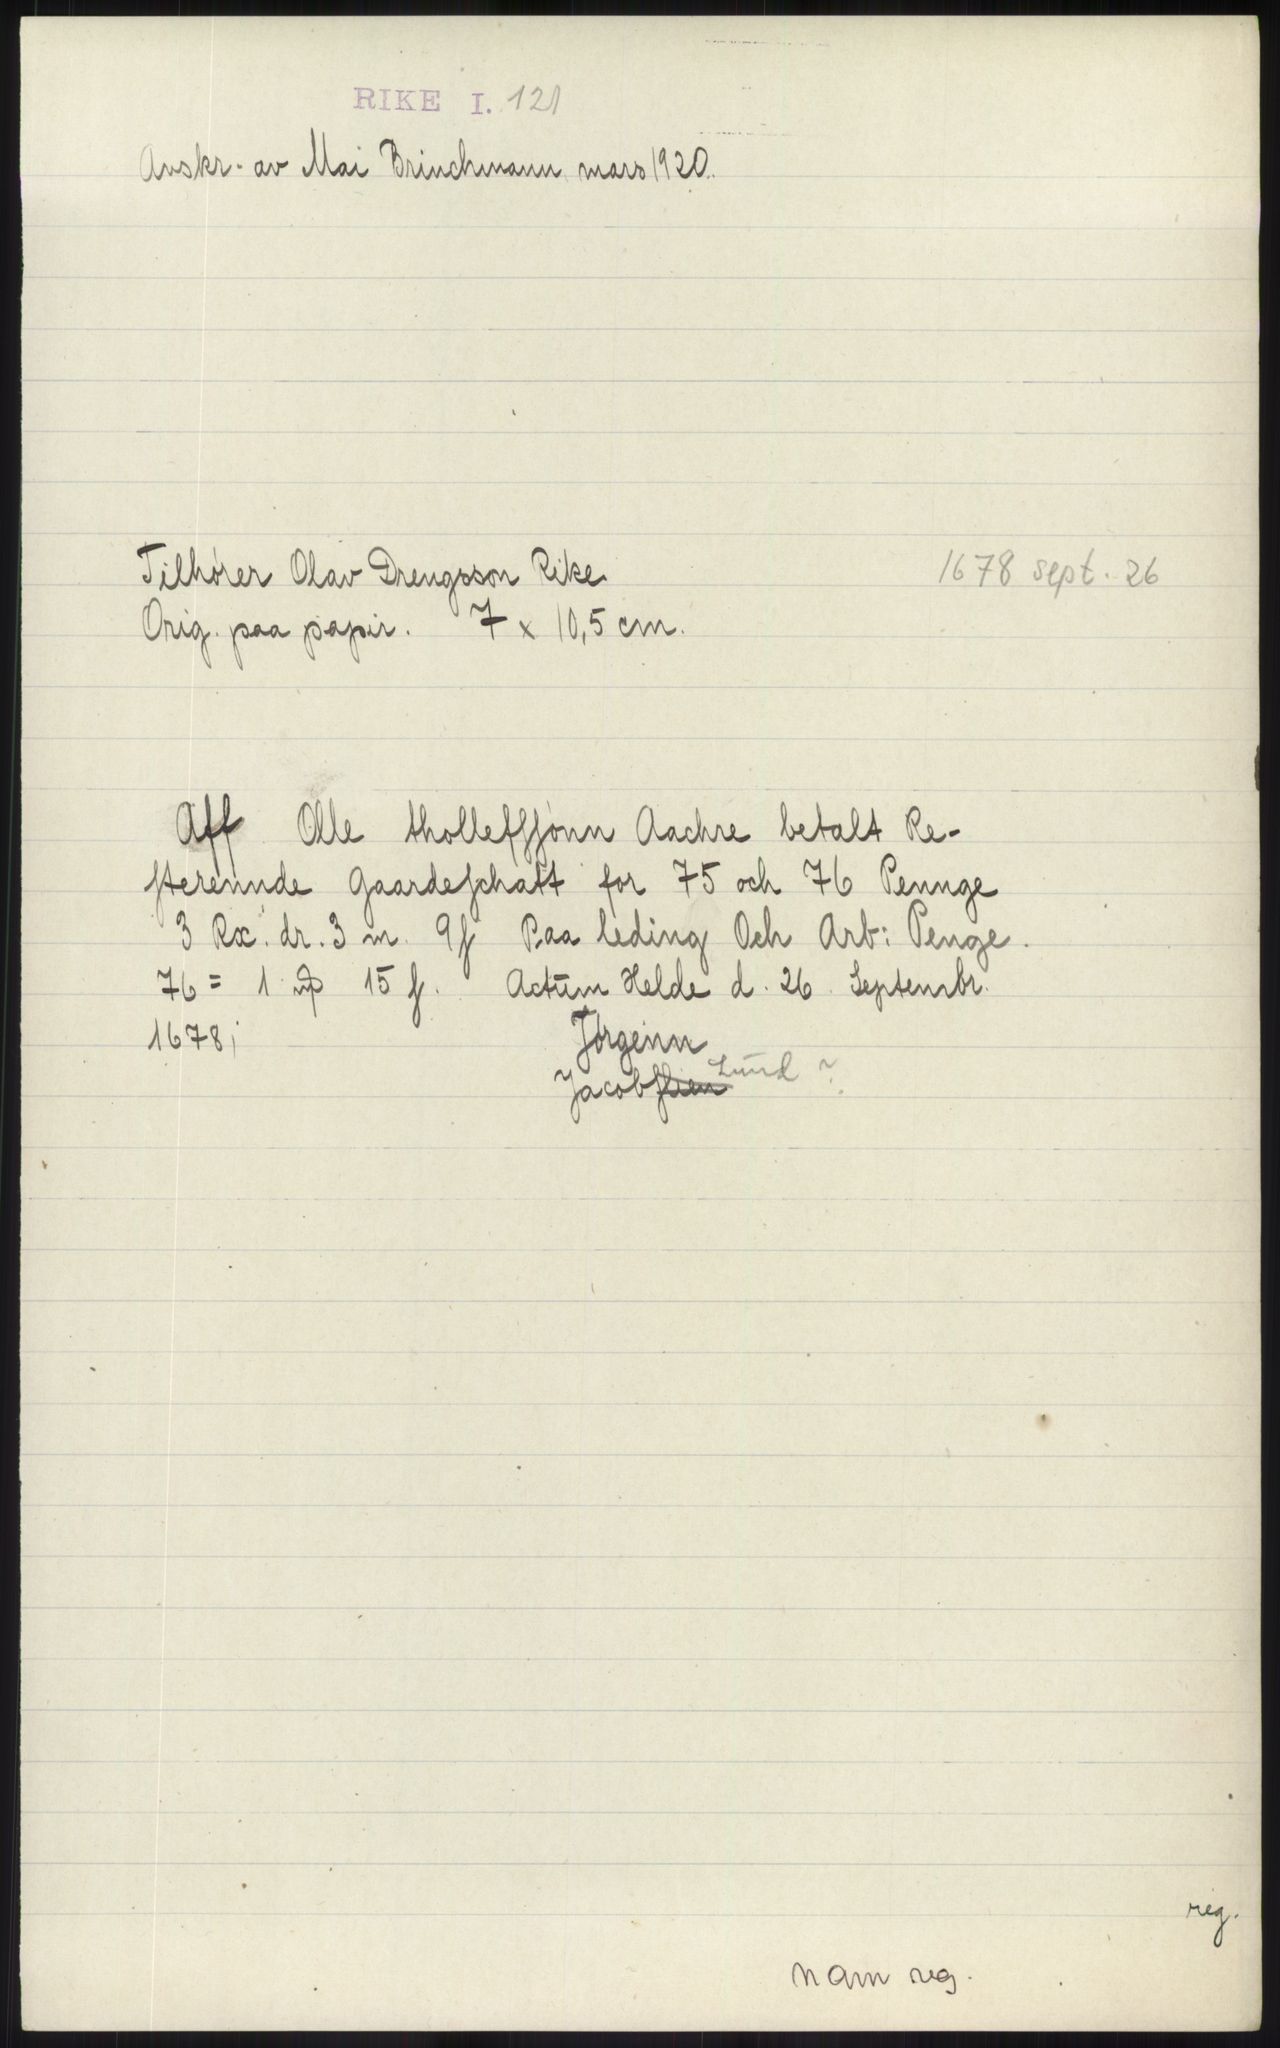 RIKE I. 121
Avskr. av Mai Brinchmann mars 1920.
Tilhører Olav Drengsson Rike
1678 sept. 26
Orig. paa papir. 7 x 10,5 cm.
Aff Olle tholleffſjønn Aachre betalt Re-
ſterennde Gaardeſchatt for 75 och 76 Pennge
3 Rx. dr. 3 m. 9 ſ Paa leding Och Arb: Penge.
76 = 1 15 ſ. Actum Helde d. 26. Septembr.
1678;
Jørgenn
Jacobſſen Lund ?
reg.
nam reg.